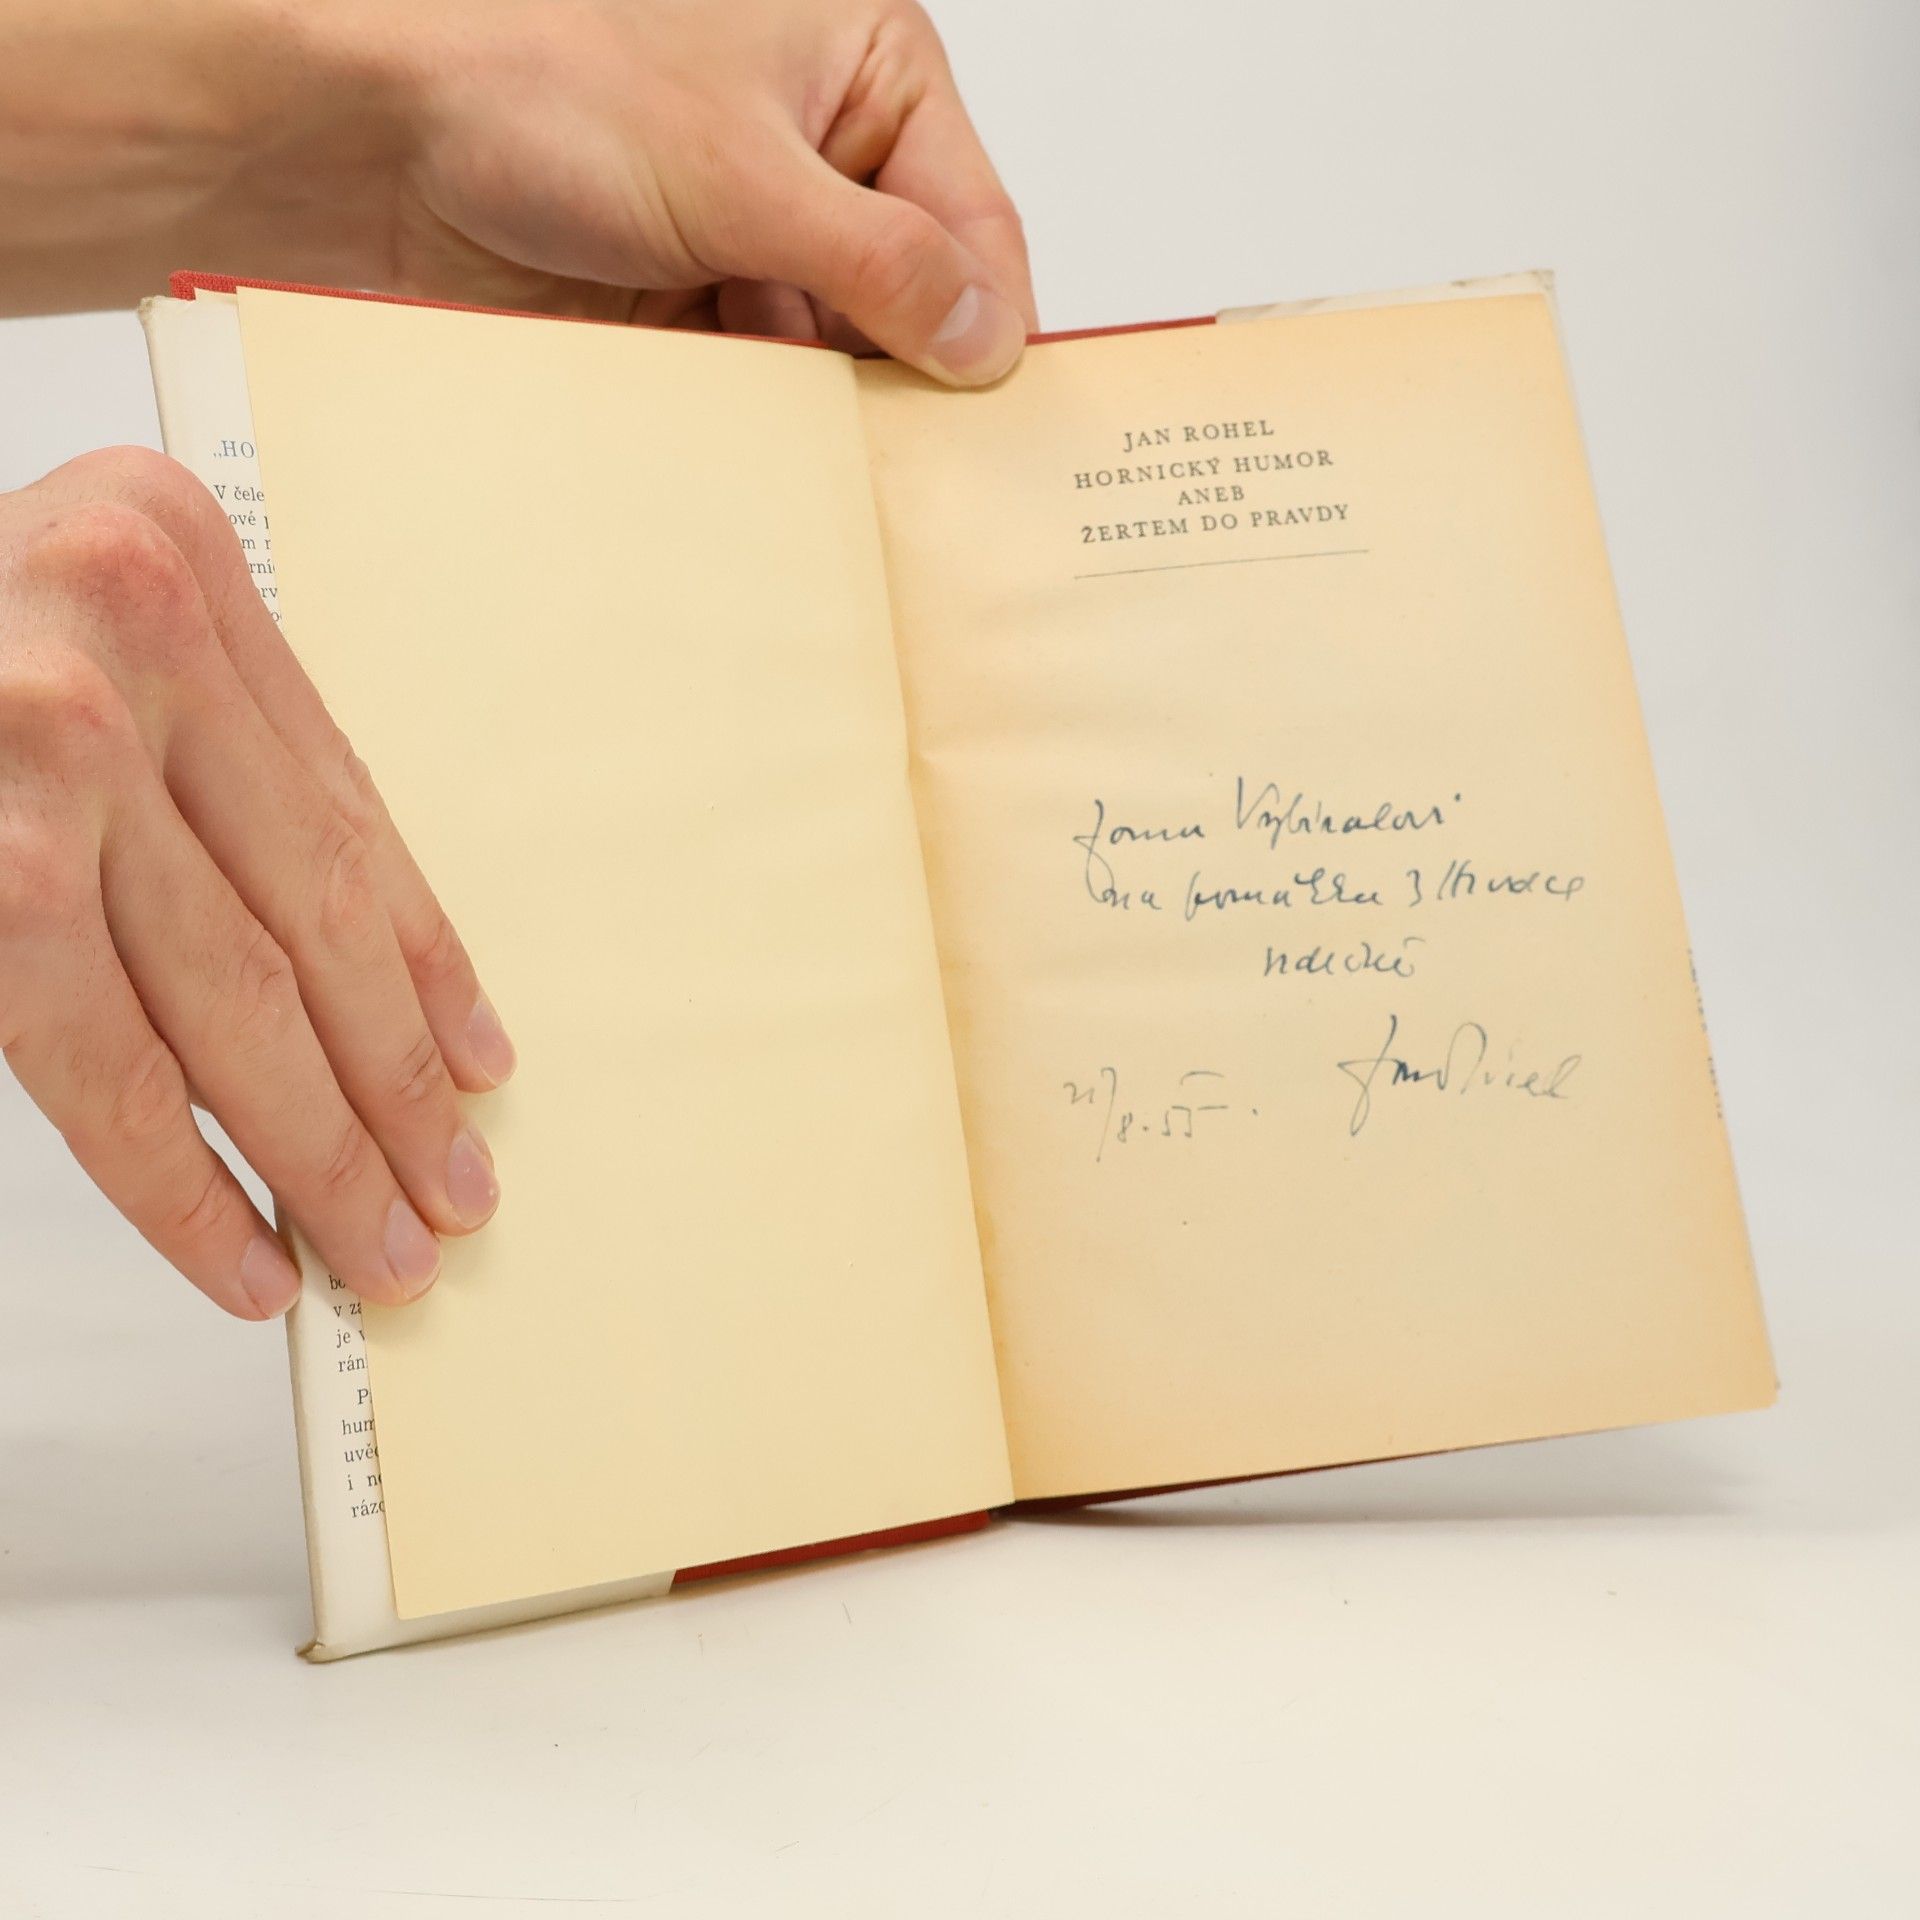 „HO
V čele
ové p
m n
rníc
rv
o
bo
v zá
je v
rán
P
hum
uvěd
i ne
rázo
JAN ROHEL
HORNICKÝ HUMOR
ANEB
ŽERTEM DO PRAVDY
Vybíralovi
na památku z
srdečně
8.55.
Jan Rohel